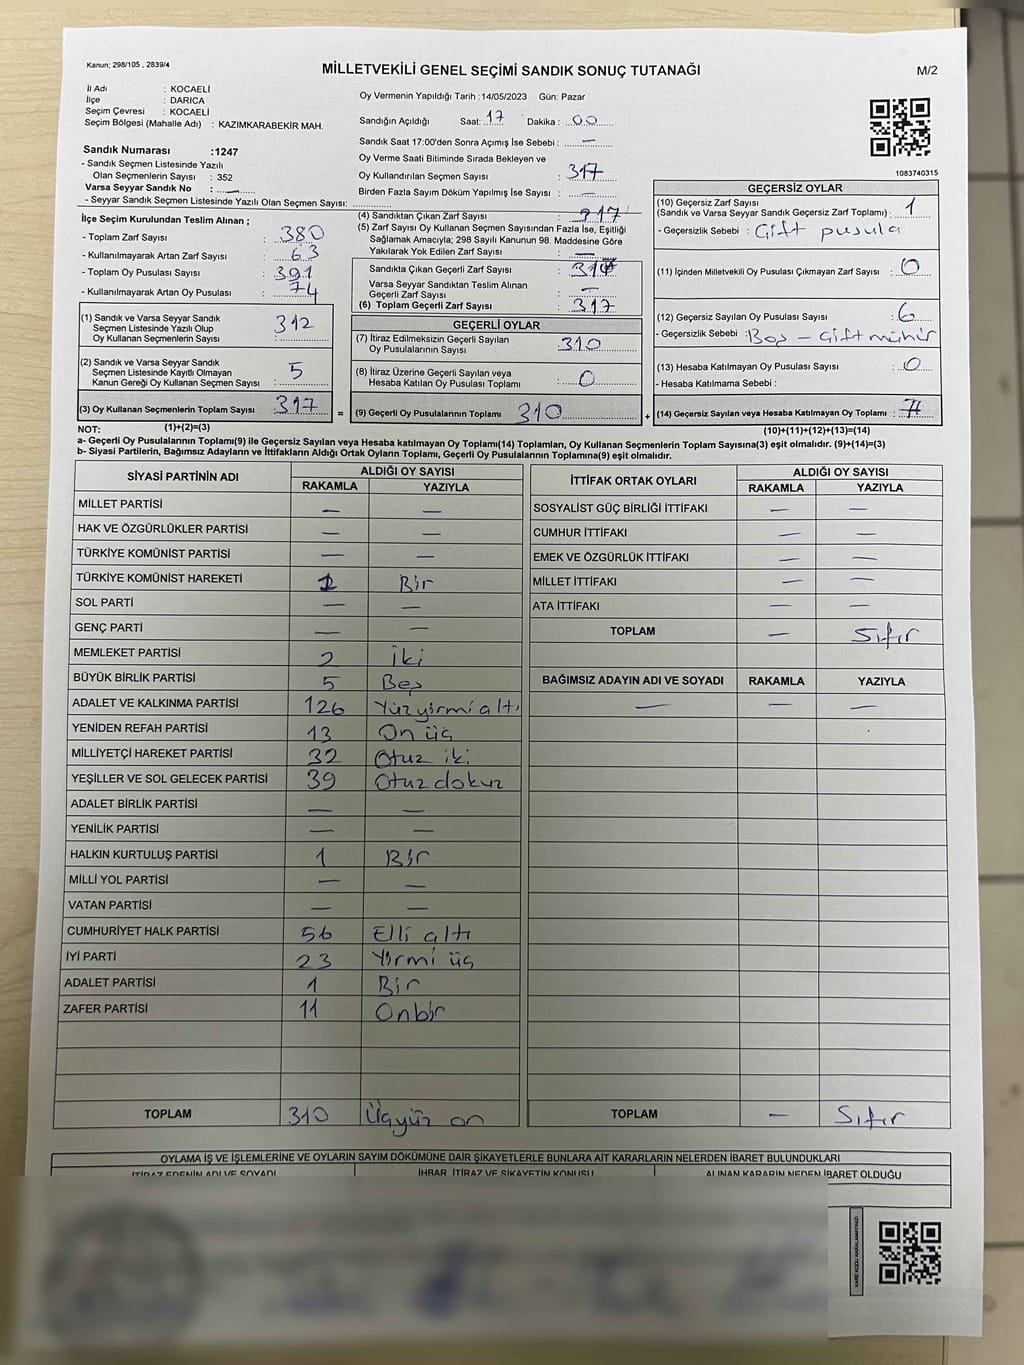 Kanun; 298/105 , 2839/4
MİLLETVEKİLİ GENEL SEÇİMİ SANDIK SONUÇ TUTANAĞI
M/2
İl Adı : KOCAELİ
İlçe : DARICA
Seçim Çevresi : KOCAELİ
Seçim Bölgesi (Mahalle Adı) : KAZIMKARABEKİR MAH.
Sandık Numarası :1247
- Sandık Seçmen Listesinde Yazılı
Olan Seçmenlerin Sayısı : 352
Varsa Seyyar Sandık No : —
- Seyyar Sandık Seçmen Listesinde Yazılı Olan Seçmen Sayısı:
Oy Vermenin Yapıldığı Tarih :14/05/2023 Gün: Pazar
Sandığın Açıldığı Saat: 17 Dakika : 00
Sandık Saat 17:00'den Sonra Açımış İse Sebebi : —
Oy Verme Saati Bitiminde Sırada Bekleyen ve
Oy Kullandırılan Seçmen Sayısı : 317
Birden Fazla Sayım Döküm Yapılmış İse Sayısı : —
1083740315
İlçe Seçim Kurulundan Teslim Alınan ;
- Toplam Zarf Sayısı : 380
- Kullanılmayarak Artan Zarf Sayısı : 63
- Toplam Oy Pusulası Sayısı : 391
- Kullanılmayarak Artan Oy Pusulası : 74
(1) Sandık ve Varsa Seyyar Sandık
Seçmen Listesinde Yazılı Olup
Oy Kullanan Seçmenlerin Sayısı : 312
(2) Sandık ve Varsa Seyyar Sandık
Seçmen Listesinde Kayıtlı Olmayan
Kanun Gereği Oy Kullanan Seçmen Sayısı : 5
(3) Oy Kullanan Seçmenlerin Toplam Sayısı : 317 =
(4) Sandıktan Çıkan Zarf Sayısı : 317
(5) Zarf Sayısı Oy Kullanan Seçmen Sayısından Fazla İse, Eşitliği
Sağlamak Amacıyla; 298 Sayılı Kanunun 98. Maddesine Göre
Yakılarak Yok Edilen Zarf Sayısı : —
Sandıkta Çıkan Geçerli Zarf Sayısı :
Varsa Seyyar Sandıktan Teslim Alınan
Geçerli Zarf Sayısı : —
(6) Toplam Geçerli Zarf Sayısı : 317
GEÇERLİ OYLAR
(7) İtiraz Edilmeksizin Geçerli Sayılan
Oy Pusulalarının Sayısı : 310
(8) İtiraz Üzerine Geçerli Sayılan veya
Hesaba Katılan Oy Pusulası Toplamı : 0
(9) Geçerli Oy Pusulalarının Toplamı 310 +
GEÇERSİZ OYLAR
(10) Geçersiz Zarf Sayısı
(Sandık ve Varsa Seyyar Sandık Geçersiz Zarf Toplamı) : 1
- Geçersizlik Sebebi : Çift pusula
(11) İçinden Milletvekili Oy Pusulası Çıkmayan Zarf Sayısı : 0
(12) Geçersiz Sayılan Oy Pusulası Sayısı : 6
- Geçersizlik Sebebi : Boş - Çift mühür
(13) Hesaba Katılmayan Oy Pusulası Sayısı : 0
- Hesaba Katılmama Sebebi :
(14) Geçersiz Sayılan veya Hesaba Katılmayan Oy Toplamı : 7
NOT: (1)+(2)=(3) (10)+(11)+(12)+(13)=(14)
a- Geçerli Oy Pusulalarının Toplamı(9) ile Geçersiz Sayılan veya Hesaba katılmayan Oy Toplamı(14) Toplamları, Oy Kullanan Seçmenlerin Toplam Sayısına(3) eşit olmalıdır. (9)+(14)=(3)
b- Siyasi Partilerin, Bağımsız Adayların ve İttifakların Aldığı Ortak Oyların Toplamı, Geçerli Oy Pusulalarının Toplamına(9) eşit olmalıdır.
SİYASİ PARTİNİN ADI ALDIĞI OY SAYISI
RAKAMLA YAZIYLA
MİLLET PARTİSİ — —
HAK VE ÖZGÜRLÜKLER PARTİSİ — —
TÜRKİYE KOMÜNİST PARTİSİ — —
TÜRKİYE KOMÜNİST HAREKETİ 1 Bir
SOL PARTİ — —
GENÇ PARTİ — —
MEMLEKET PARTİSİ 2 İki
BÜYÜK BİRLİK PARTİSİ 5 Beş
ADALET VE KALKINMA PARTİSİ 126 Yüzyirmialtı
YENİDEN REFAH PARTİSİ 13 On üç
MİLLİYETÇİ HAREKET PARTİSİ 32 Otuz iki
YEŞİLLER VE SOL GELECEK PARTİSİ 39 Otuz dokuz
ADALET BİRLİK PARTİSİ — —
YENİLİK PARTİSİ — —
HALKIN KURTULUŞ PARTİSİ 1 Bir
MİLLİ YOL PARTİSİ — —
VATAN PARTİSİ — —
CUMHURİYET HALK PARTİSİ 56 Elli altı
İYİ PARTİ 23 Yirmi üç
ADALET PARTİSİ 1 Bir
ZAFER PARTİSİ 11 Onbir
TOPLAM 310 Üçyüz on
İTTİFAK ORTAK OYLARI ALDIĞI OY SAYISI
RAKAMLA YAZIYLA
SOSYALİST GÜÇ BİRLİĞİ İTTİFAKI — —
CUMHUR İTTİFAKI — —
EMEK VE ÖZGÜRLÜK İTTİFAKI — —
MİLLET İTTİFAKI — —
ATA İTTİFAKI — —
TOPLAM — Sıfır
BAĞIMSIZ ADAYIN ADI VE SOYADI RAKAMLA YAZIYLA
— — —
TOPLAM — Sıfır
OYLAMA İŞ VE İŞLEMLERİNE VE OYLARIN SAYIM DÖKÜMÜNE DAİR ŞİKAYETLERLE BUNLARA AİT KARARLARIN NELERDEN İBARET BULUNDUKLARI
İTİRAZ EDENİN ADI VE SOYADI İHBAR, İTİRAZ VE ŞİKAYETİN KONUSU ALINAN KARARIN NEDEN İBARET OLDUĞU
KARE KODU KARALAMAYINIZ!